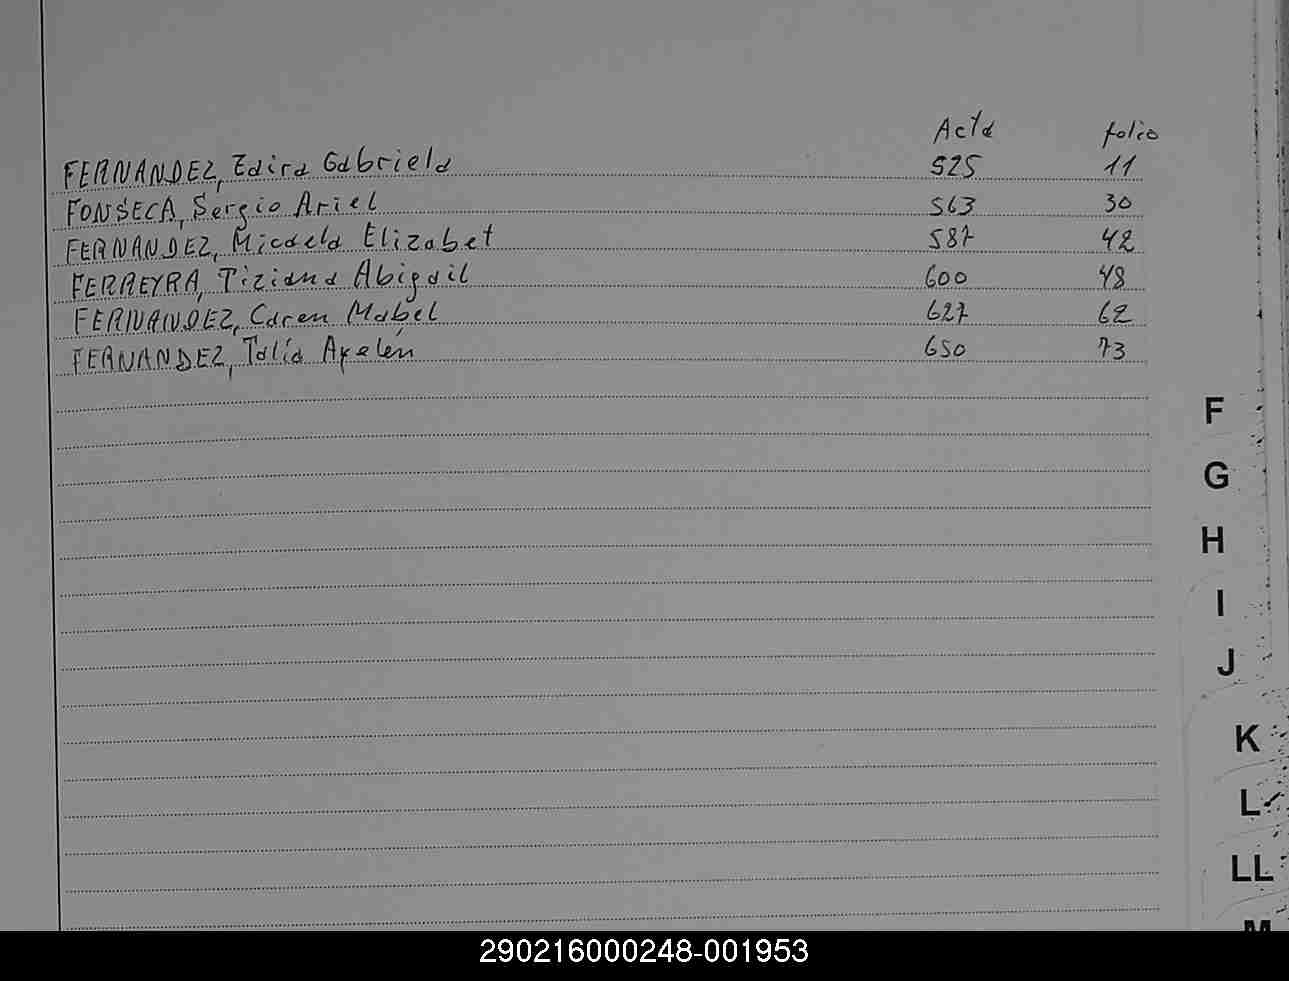 Acta folio
FERNANDEZ, Zaira Gabriela 525 11
FONSECA, Sergio Ariel 563 30
FERNANDEZ, Micaela Elizabet 587 42
FERREYRA, Tiziana Abigail 600 48
FERNANDEZ, Caren Mabel 627 62
FERNANDEZ, Talía Ayelén 650 73
F
G
H
I
J
K
L
LL
M
290216000248-001953